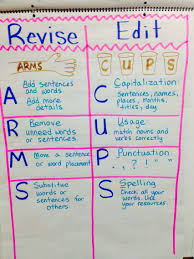 Revise
Edit
ARMS
CUPS
A
Add sentences
and words
Add more
details
R
Remove
unneed words
or sentences
M
Move a sentence
or word placement
S
Substitute
words or
sentences for
others
C
Capitalization
Sentences, names,
places, months,
titles, day
U
Usage
match nouns and
verbs correctly
P
Punctuation
. , ? ! " "
S
Spelling
Check all
your words. Use
your resources.